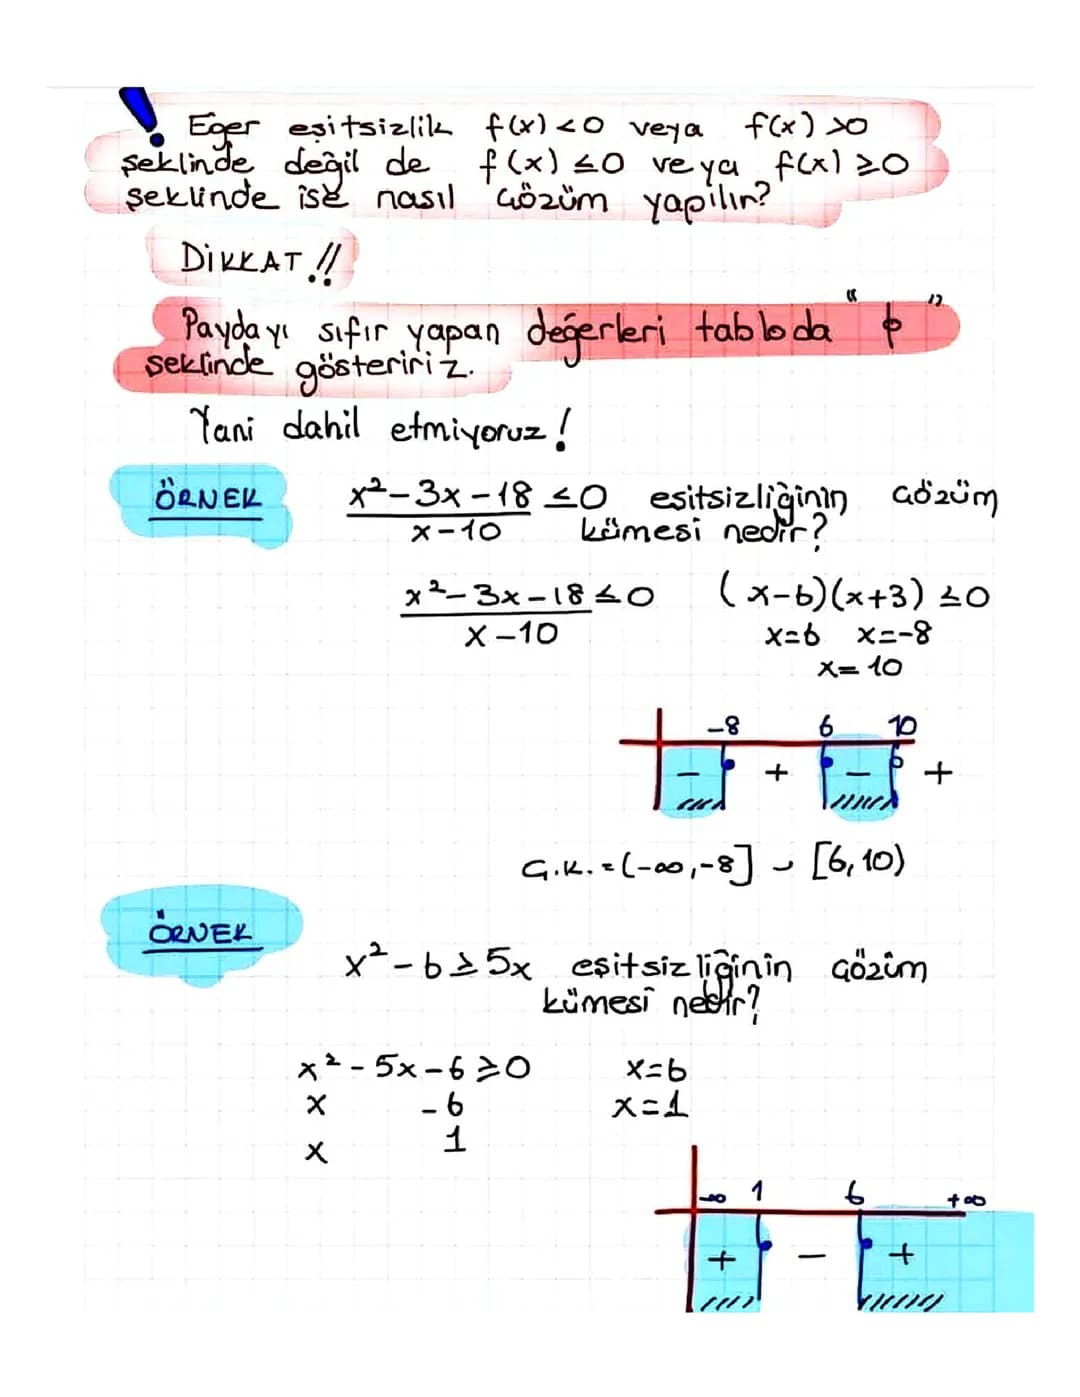 ! Eğer eşitsizlik f(x) <0 veya f(x) >0
şeklinde değil de f(x) ≤0 veya f(x) ≥0
şeklinde ise nasıl çözüm yapılır?
DİKKAT !!
Paydayı sıfır yapan değerleri tabloda " ϕ "
şeklinde gösteririz.
Yani dahil etmiyoruz!
ÖRNEK x²-3x-18 ≤0 eşitsizliğinin çözüm
x-10 kümesi nedir?
x²-3x-18 ≤0 (x-6)(x+3) ≤0
x-10 x=6 x=-8
x=10
-8 6 10
- + - +
G.K. = (-∞,-8] ∪ [6,10)
ÖRNEK
x²-6≥5x eşitsizliğinin çözüm
kümesi nedir?
x²-5x-6≥0 x=6
x -6 x=1
x 1
-∞ 1 6 +∞
+ - +